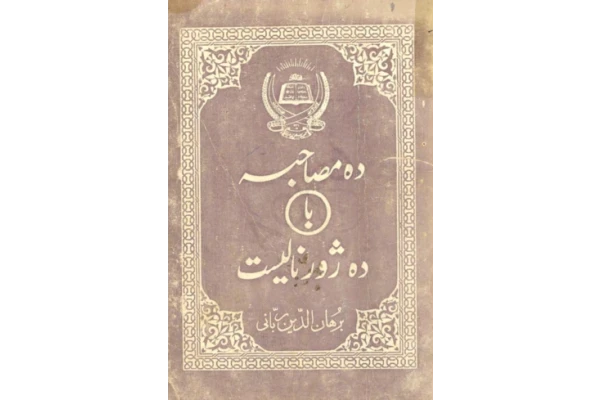 ده مصاحبه
با
ده ژورنالیست
برهان الدّین ربّانی